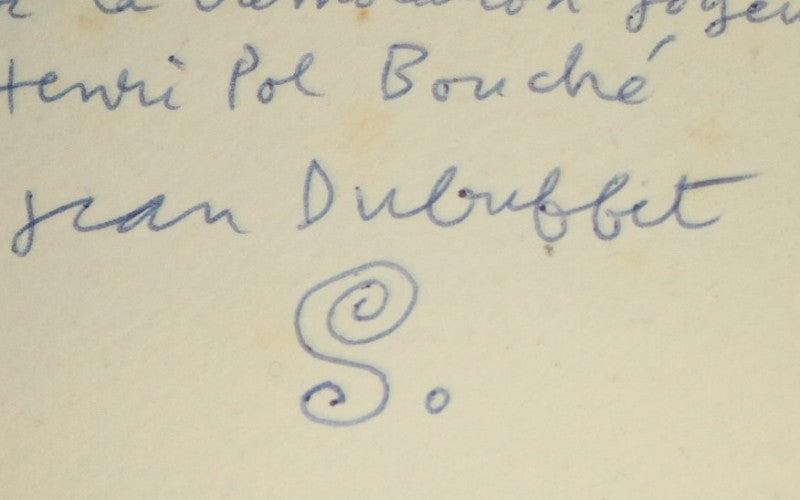 la
Henri Pol Bouché
Jean Dubuffet
S.